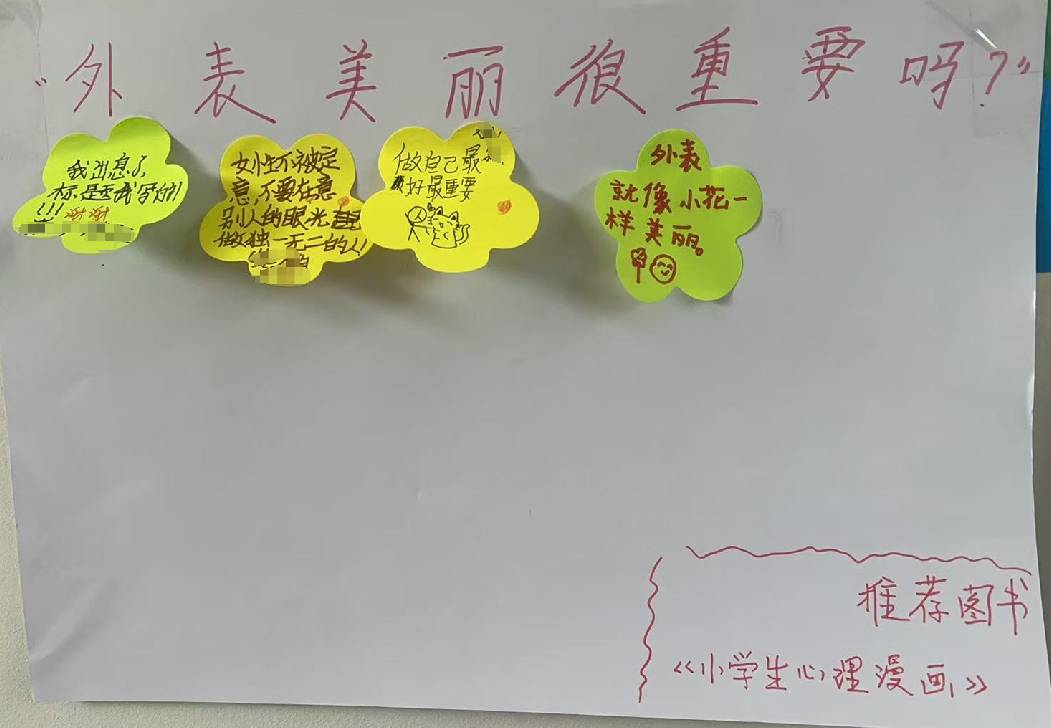 “外表美丽很重要吗？”
我出息了,
标是至我写的!
!!! 谢谢
女性不被定
意,不要在意
别人的眼光
做独一无二的人!
做自己最
最好最重要
外表
就像小花一
样美丽。
推荐图书
《小学生心理漫画》